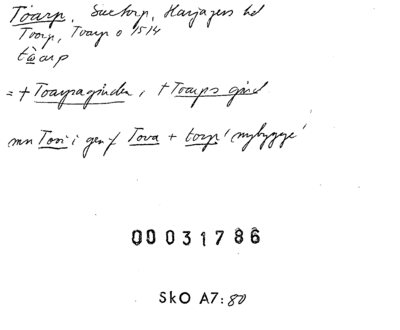 Toarp, Svetorp, Harjagers hd
Toorp, Tvarp o 1514
tòarp
= + Toarpagården, + Toarps gård
mn Tovi i gen f Tova + torp 'nybygge'
00031786
SkO A7:80